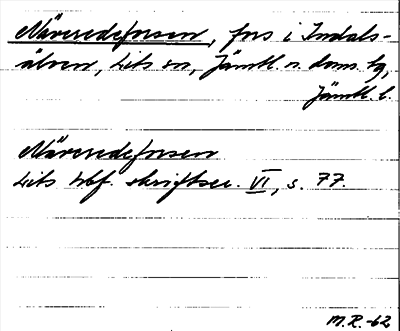 Näveredeforsen, fors i Indals-
älven, Lits sn, Jämtl. n. doms. hg,
Jämtl. l.
Näveredeforsen
Lits hbf. skriftser. VI, s. 77.
M.R.-62